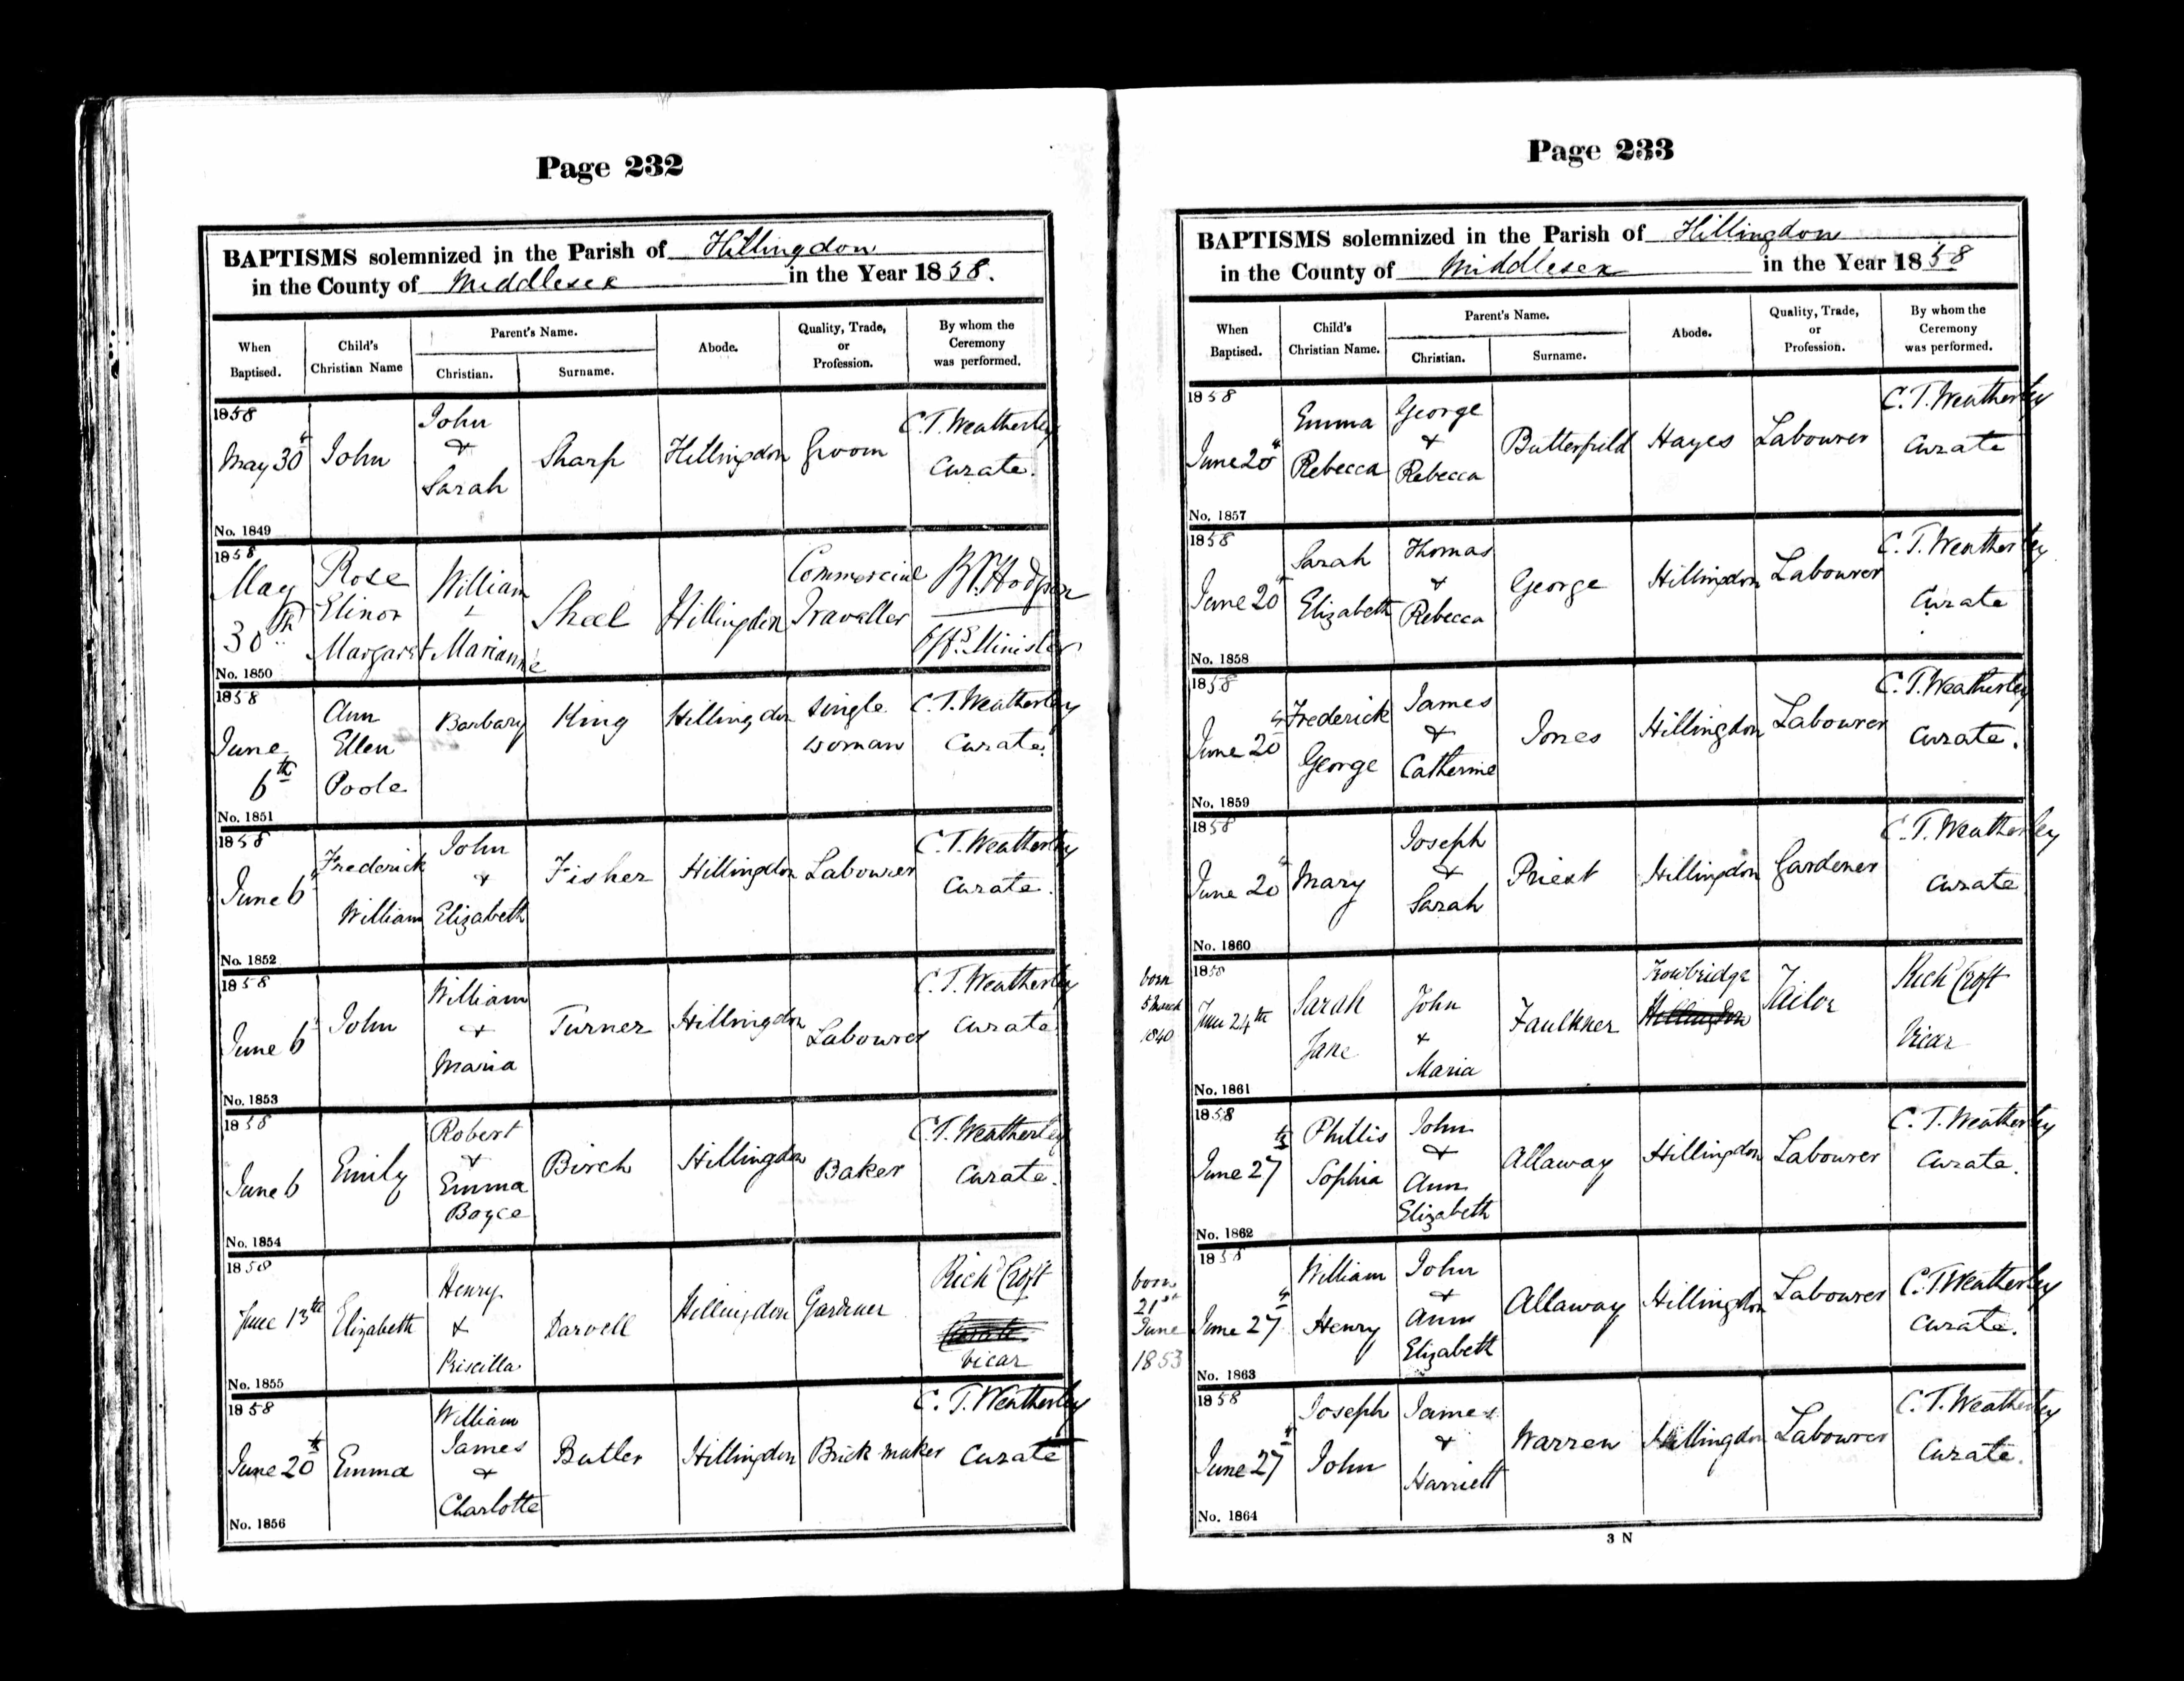 Page 232
BAPTISMS solemnized in the Parish of Hillingdon
in the County of Middlesex in the Year 1858.
When Baptised. Child's Christian Name Parent's Name. Christian. Surname. Abode. Quality, Trade, or Profession. By whom the Ceremony was performed.
1858
May 30th John John & Sarah Sharp Hillingdon Groom C. T. Weatherley Curate.
No. 1849
1858
May 30th Rose Elinor Margaret William + Marianne Skeel Hillingdon Commercial Traveller Hodgson Offg. Minister
No. 1850
1858
June 6th Ann Ellen Poole Barbary King Hillingdon Single woman C. T. Weatherley Curate.
No. 1851
1858
June 6 Frederick William John & Elizabeth Fisher Hillingdon Labourer C. T. Weatherley Curate.
No. 1852
1858
June 6 John William & Maria Turner Hillingdon Labourer C. T. Weatherley Curate
No. 1853
1858
June 6 Emily Robert & Emma Boyce Birch Hillingdon Baker C. T. Weatherley Curate.
No. 1854
1858
June 13th Elizabeth Henry & Priscilla Darvell Hillingdon Gardener Richd Croft Curate Vicar
No. 1855
1858
June 20th Emma William James & Charlotte Butler Hillingdon Brick maker C. T. Weatherley Curate
No. 1856
Page 233
BAPTISMS solemnized in the Parish of Hillingdon
in the County of Middlesex in the Year 1858
When Baptised. Child's Christian Name. Parent's Name. Christian. Surname. Abode. Quality, Trade, or Profession. By whom the Ceremony was performed.
1858
June 20th Emma Rebecca George & Rebecca Butterfield Hayes Labourer C. T. Weatherley Curate
No. 1857
1858
June 20th Sarah Elizabeth Thomas & Rebecca George Hillingdon Labourer C. T. Weatherley Curate
No. 1858
1858
June 20th Frederick George James & Catherine Jones Hillingdon Labourer C. T. Weatherley Curate.
No. 1859
1858
June 20th Mary Joseph & Sarah Priest Hillingdon Gardener C. T. Weatherley Curate
No. 1860
born 5 March 1840
1858
June 24th Sarah Jane John & Maria Faulkner Trowbridge Hillingdon Tailor Richd Croft Vicar
No. 1861
1858
June 27th Phillis Sophia John & Ann Elizabeth Allaway Hillingdon Labourer C. T. Weatherley Curate.
No. 1862
born 21st June 1853
1858
June 27th William Henry John & Ann Elizabeth Allaway Hillingdon Labourer C. T. Weatherley Curate.
No. 1863
1858
June 27th Joseph John James & Harriett Warren Hillingdon Labourer C. T. Weatherley Curate.
No. 1864
3 N